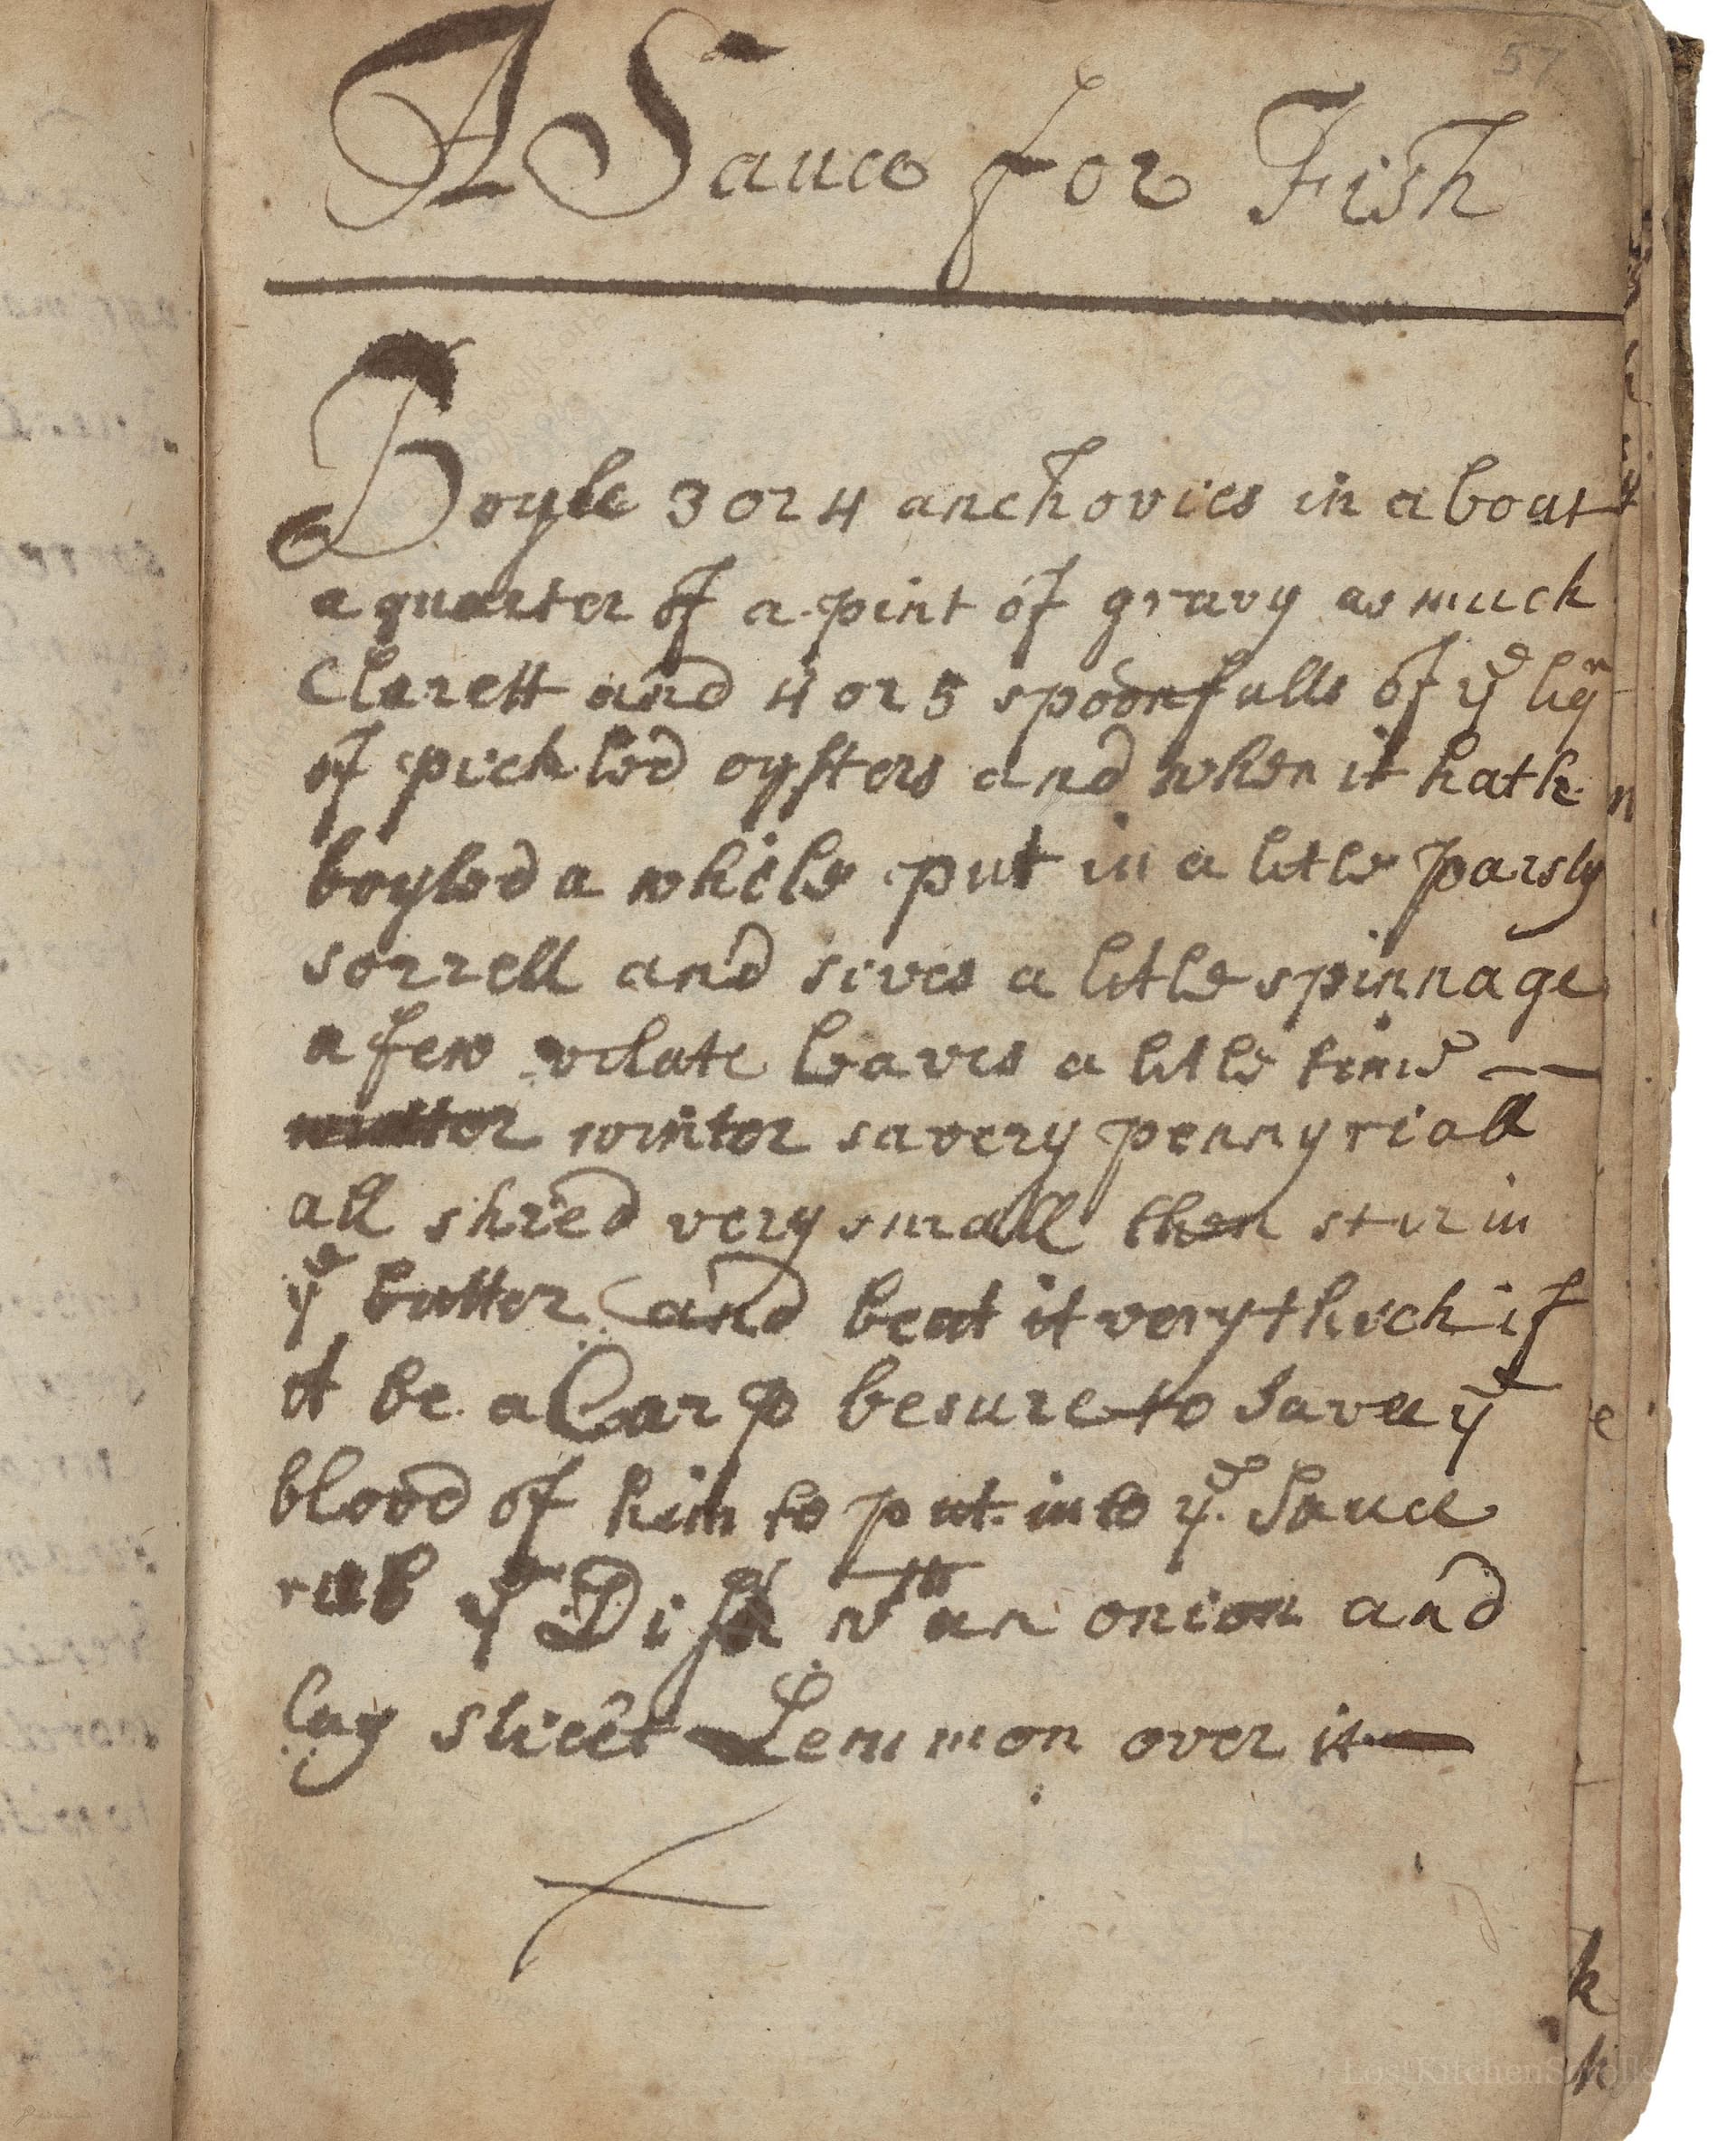 57
A Sauce for Fish
Boyle 3 or 4 anchovies in about
a quarter of a pint of gravy as much
Clarett and 4 or 5 spoonfulls of yᵉ liqʳ
of pickled oysters and when it hath
boyled a while put in a litle parsly
sorrell and sives a litle spinnage
a few vilate leaves a litle time
winter savery pennyriall
all shred very small then stir in
yᵉ butter and beat it very thick if
it be a Carp be sure to save yᵉ
blood of him to put into yᵉ Sauce
rub yᵉ Dish wᵗʰ an onion and
lay slicet Lemmon over it
LostKitchenScrolls